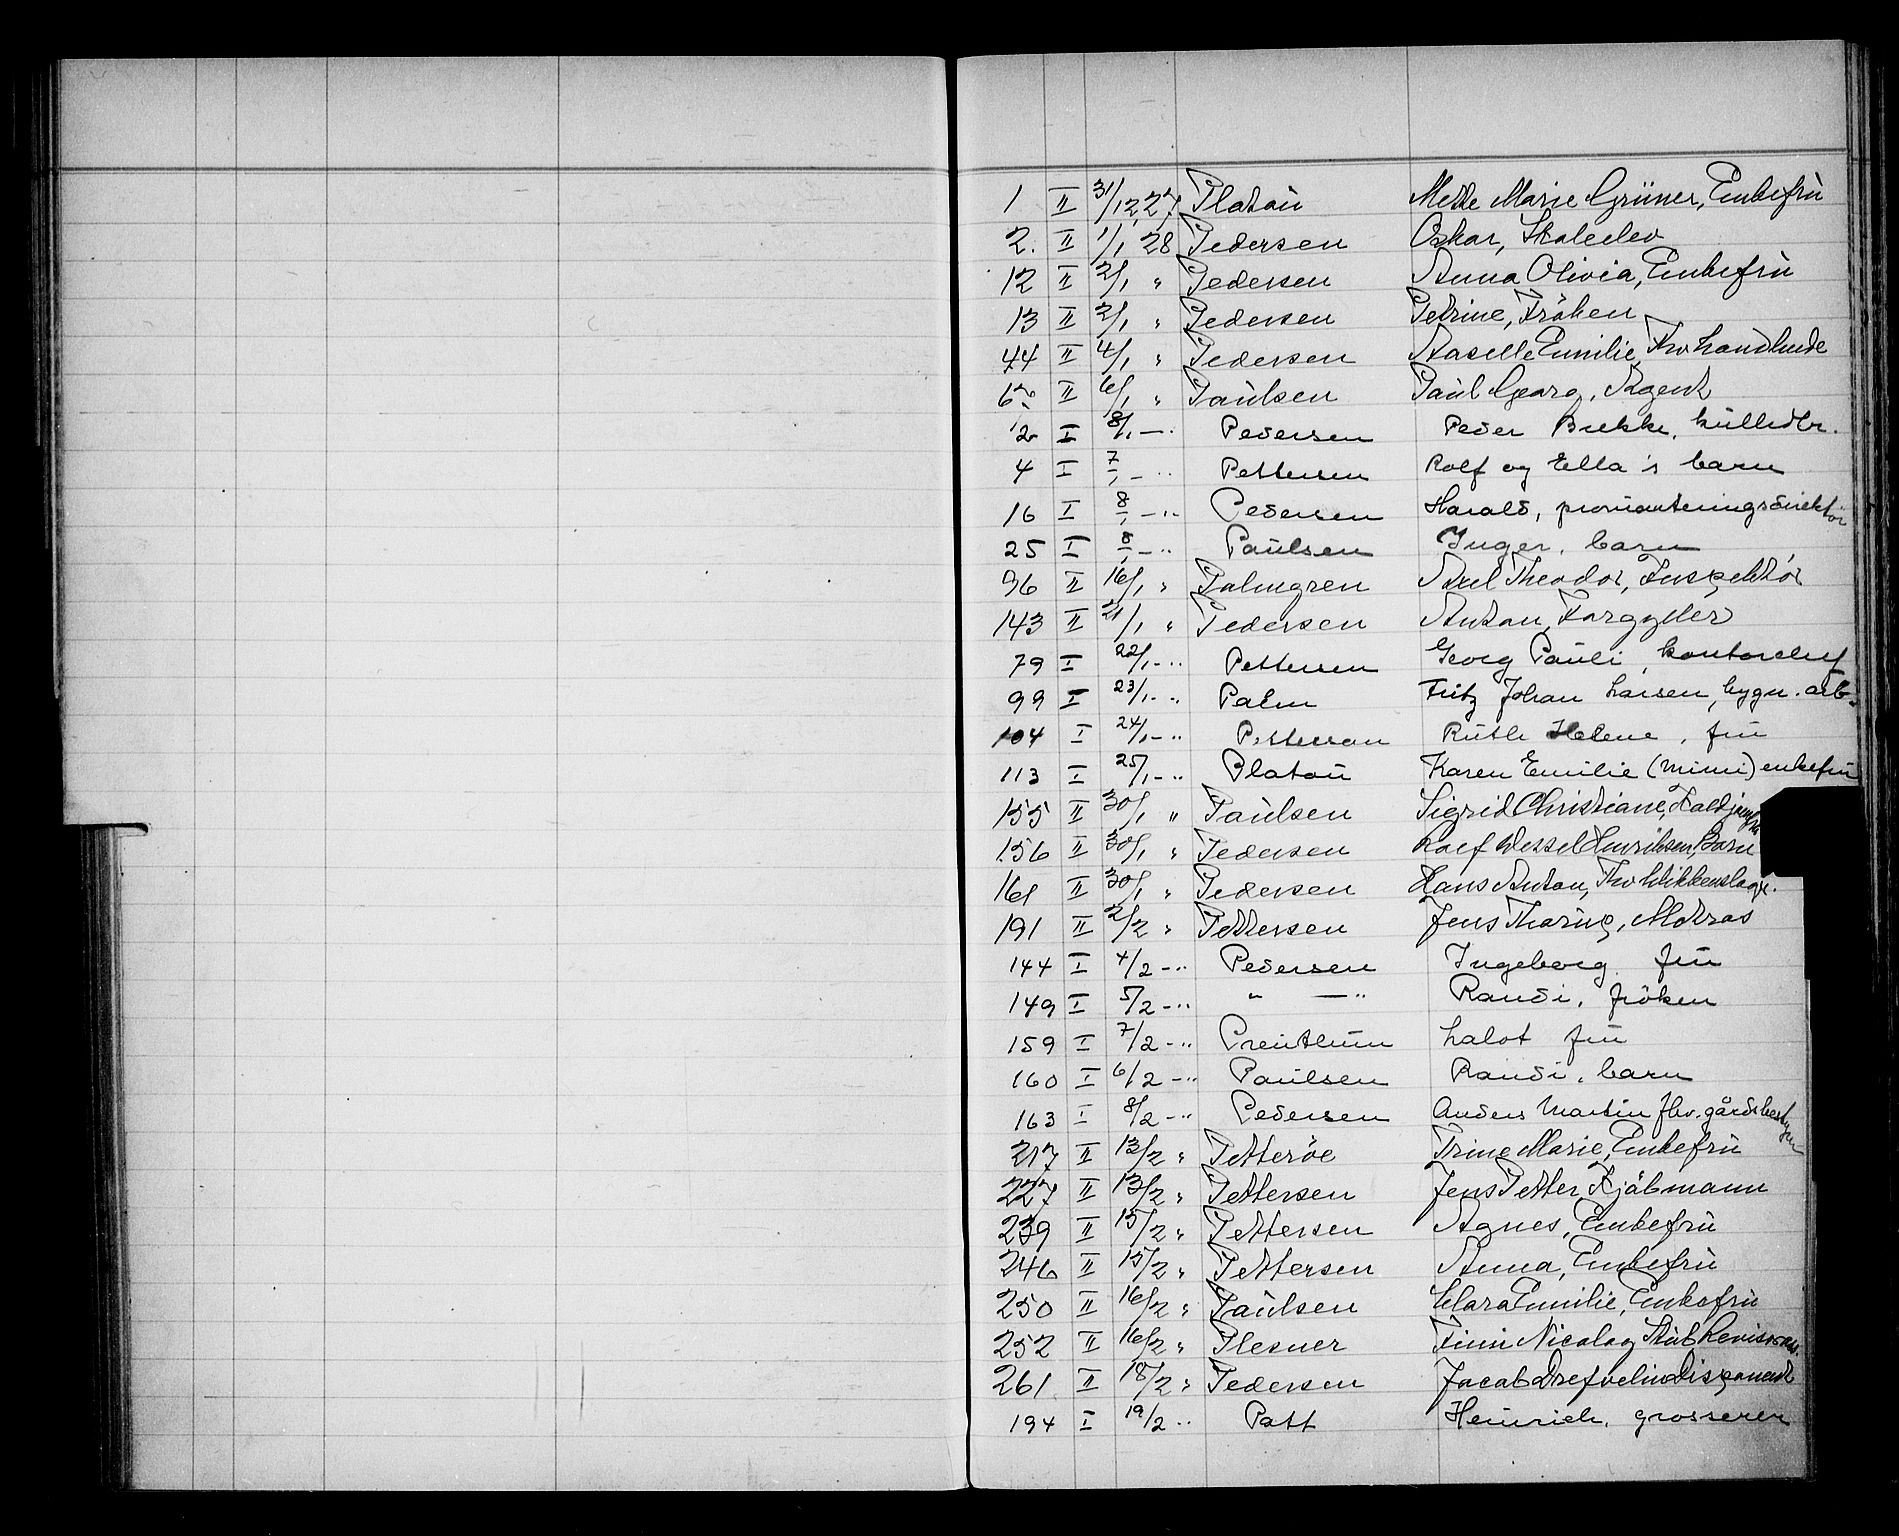 1 II 31/12 27 Platou Mette Marie Grüner, Enkefru
2. II 1/1 28 Pedersen Oskar, Skoleelev
12 II 2/1 " Pedersen Anna Olivia, Enkefru
13 II 2/1 " Pedersen Petrine, Fröken
44 II 4/1 " Pedersen Aaselle Emilie, Fhv
II 6/1 " Paulsen Paul Georg, Agent
2 I 8/1 - " Pedersen Peder Brekke,
4 I 7/1 - " Pettersen Rolf og Ella's barn
16 I 8/1 - " Pedersen Harald, provianteringsdirektör
25 I 8/1 - " Paulsen Inger, barn
96 II 16/1 " Palmgren Axel Theodor, Inspektör
143 II 21/1 " Pedersen Anton, Forgylder
79 I 22/1 - " Pettersen Georg Pauli, kontorchef
99 I 23/1 - " Palm Fritz Johan Larsen, bygn. arb.
104 I 24/1 - " Petterson Ruth Helene, fru
113 I 25/1 - " Platou Karen Emilie (Mimi) enkefru
155 II 30/1 " Paulsen Sigrid Christiane,
156 II 30/1 " Pedersen Roef Wessel Henriksen, Barn
161 II 30/1 " Pedersen Hans Anton, Fhv blikkenslager.
191 II 2/2 " Pettersen Jens Thorup, Matros
144 I 4/2 - " Pedersen Ingeborg fru
149 I 5/2 - " " — " Randi, fröken
159 I 7/2 - " Preuthun Lalot fru
160 I 6/2 - " Paulsen Randi, barn
163 I 8/2 - " Pedersen Anders Martin fhv. gårdbestyrer
217 II 13/2 " Petteröe Trine Marie, Enkefru
227 II 13/2 " Pettersen Jens Petter, Kjöbmann
239 II 15/2 " Pettersen Agnes, Enkefru
246 II 15/2 " Pettersen Anna, Enkefru
250 II 16/2 " Paulsen Clara Emilie, Enkefru
252 II 16/2 " Plesner Finn Nicolay Stub
261 II 18/2 " Pedersen Jacob Drefvelin Disponent
194 I 19/2 " Patt Heinrich, grosserer